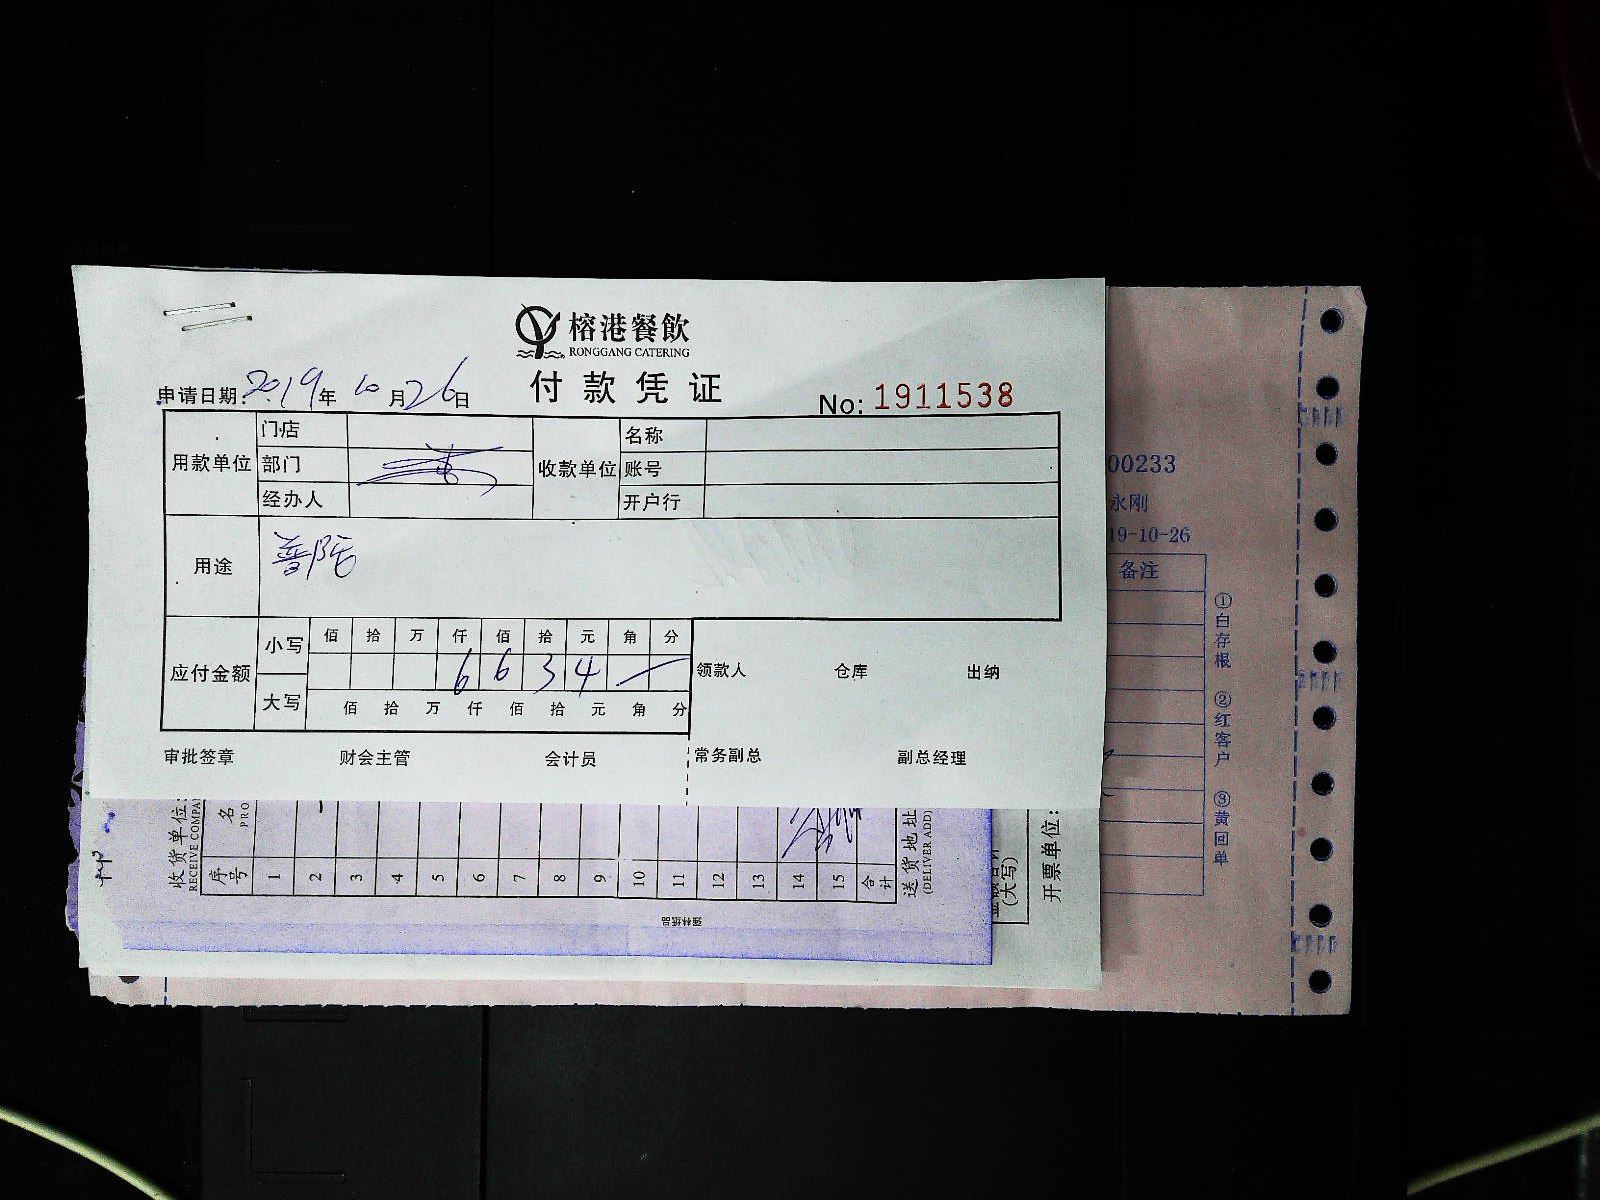 榕港餐飲
RONGGANG CATERING
付款凭证
申请日期:2019年10月26日
No: 1911538
用款单位 门店 收款单位 名称
部门 账号
经办人 开户行
用途 普陀
应付金额 小写 佰 拾 万 仟 佰 拾 元 角 分
6 6 3 4 —
大写 佰 拾 万 仟 佰 拾 元 角 分
领款人 仓库 出纳
审批签章 财会主管 会计员 常务副总 副总经理
00233
永刚
19-10-26
备注
①白存根 ②红客户 ③黄回单
收货单位:
RECEIVE COMPA
序号 1 2 3 4 5 6 7 8 9 10 11 12 13 14 15 合计
名
PRO
送货地址
(DELIVER ADD)
(大写)
开票单位: